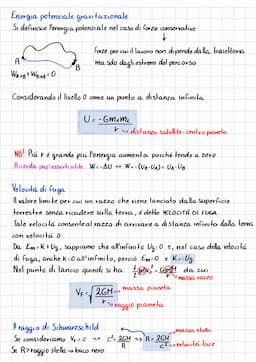 Energia potenziale gravitazionale
Si definisce l'energia potenziale nel caso di forze conservative
forze per cui il lavoro non dipende dalla traiettoria
ma solo dagli estremi del percorso
A
B
W_AB + W_BA = 0
Considerando il livello 0 come un punto a distanza infinita
U = -G m₁m₂ / r
distanza satellite-centro pianeta
NB! Più r è grande più l'energia aumenta poiché tende a zero
Ricorda pross. esercizi: W = -ΔU → W = -(U_B - U_A) = U_A - U_B
Velocità di fuga
Il valore limite per cui un razzo che viene lanciato dalla superficie
terrestre senza ricadere sulla terra, è detto VELOCITÀ DI FUGA
Tale velocità consente al razzo di arrivare a distanza infinita dalla terra
con velocità 0.
Da Em = K + Ug, sappiamo che all'infinito Ug = 0 e, nel caso della velocità
di fuga, anche K = 0 all'infinito, perciò Em = 0 e K = -Ug
Nel punto di lancio quindi si ha: ½ m V_F² = G m M / r da cui
massa razzo
V_F = √(2GM / r)
massa pianeta
raggio pianeta
Il raggio di Schwarzschild
massa stella
Se consideriamo V_F = c ⇒ c² = 2GM / R → R = 2GM / c²
velocità luce
Se R > raggio stella → buco nero